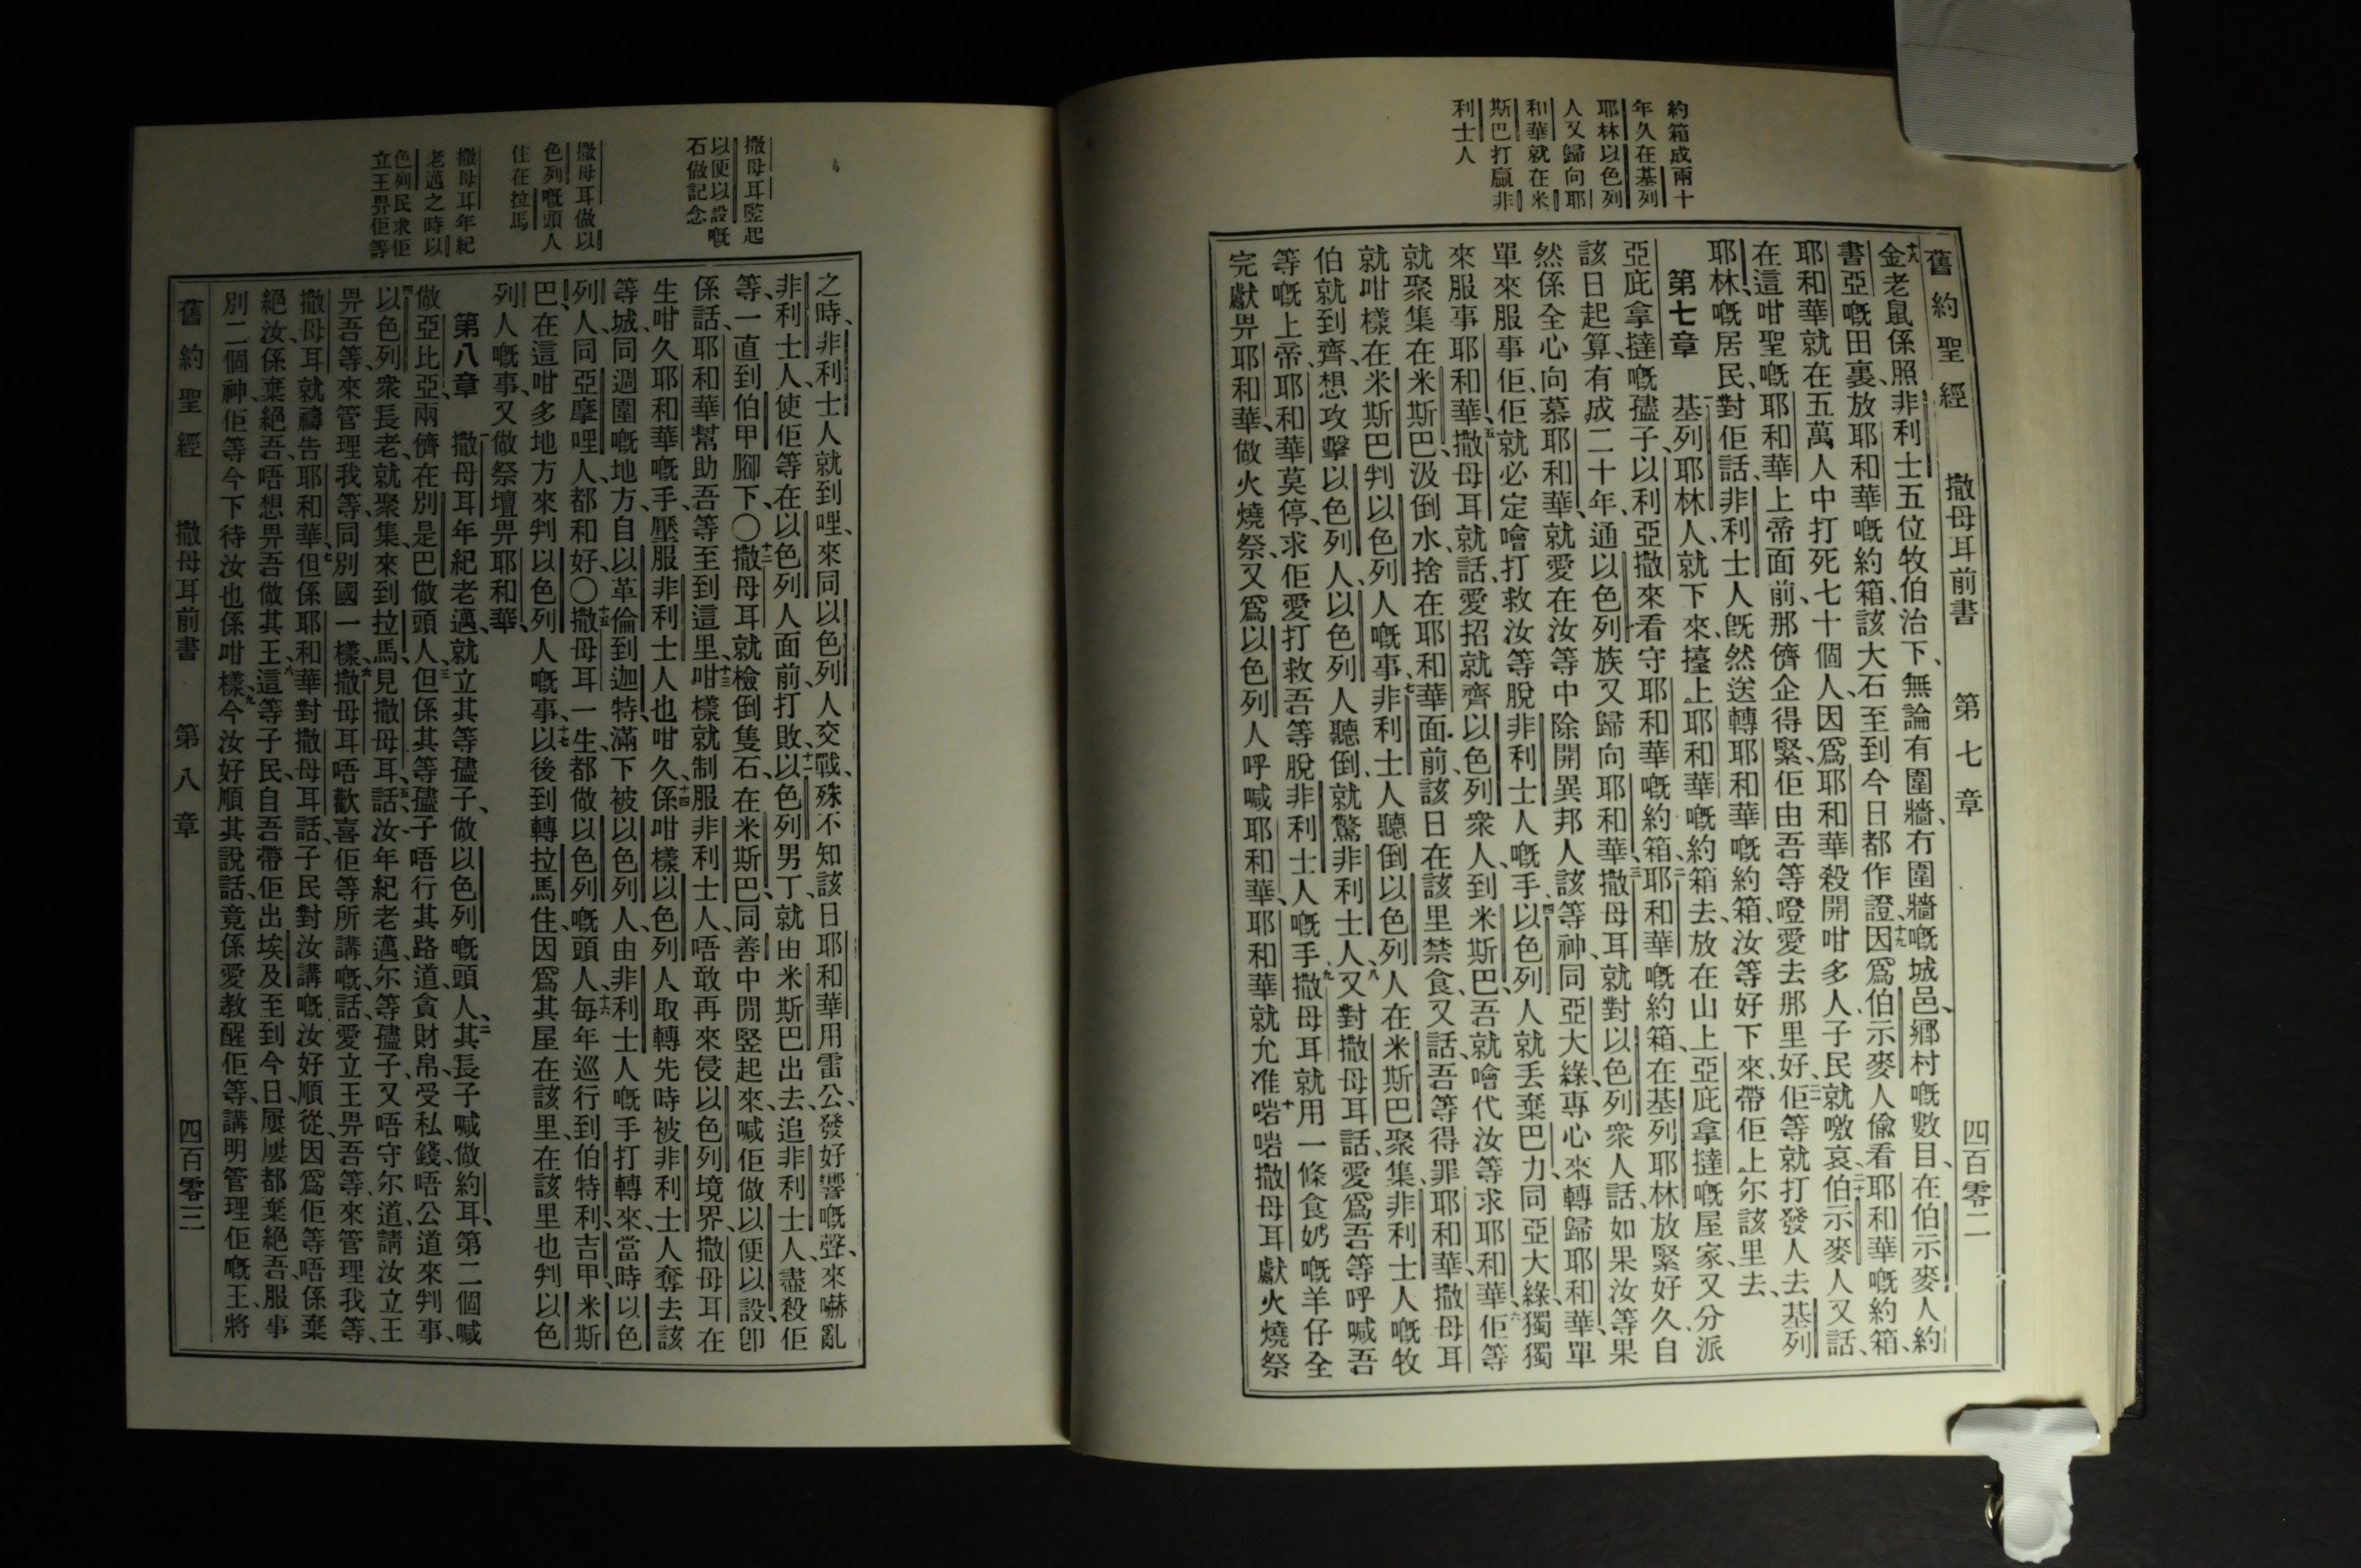 舊約聖經 撒母耳前書 第七章 四百零二
約箱成兩十
年久在基列
耶林以色列
人又歸向耶
和華就在米
斯巴打贏非
利士人
十八金老鼠係照、非利士五位牧伯治下、無論有圍牆、冇圍牆嘅城邑、鄉村嘅數目、在伯示麥人約
書亞嘅田裏、放耶和華嘅約箱、該大石至到今日都作證、十九因爲伯示麥人偸看耶和華嘅約箱、
耶和華就在五萬人中打死七十個人、因爲耶和華殺開咁多人、子民就噭哀、二十伯示麥人又話、
在這咁聖嘅耶和華上帝面前、那儕企得緊、佢由吾等嶝愛去那里好、二一佢等就打發人去、基列
耶林、嘅居民、對佢話、非利士人旣然送轉耶和華嘅約箱、汝等好下來、帶佢上尔該里去、
第七章 一基列耶林人、就下來、擡上耶和華嘅約箱去、放在山上亞庇拿撻嘅屋家、又分派
亞庇拿撻嘅孻子、以利亞撒來看守耶和華嘅約箱、二耶和華嘅約箱、在基列耶林放緊好久、自
該日起算、有成二十年、通以色列族又歸向耶和華、三撒母耳就對以色列衆人話、如果汝等果
然係全心向慕耶和華、就愛在汝等中除開異邦人該等神、同亞大綠、專心來轉歸耶和華、單
單來服事佢、佢就必定噲打救汝等脫非利士人嘅手、四以色列人就丢棄巴力同亞大綠、獨獨
來服事耶和華、五撒母耳就話、愛招就齊以色列衆人、到米斯巴、吾就噲代汝等求耶和華、六佢等
就聚集在米斯巴、汲倒水、捨在耶和華面前、該日在該里禁食、又話、吾等得罪耶和華、撒母耳
就咁樣在米斯巴判以色列人嘅事、七非利士人聽倒以色列人在米斯巴聚集、非利士人嘅牧
伯就到齊、想攻擊以色列人、以色列人聽倒、就驚非利士人、八又對撒母耳話、愛爲吾等呼喊吾
等嘅上帝、耶和華莫停、求佢愛打救吾等脫非利士人嘅手、九撒母耳就用一條食奶嘅羊仔全
完獻畀耶和華、做火燒祭、又爲以色列人呼喊耶和華、耶和華就允准、十啱啱撒母耳獻火燒祭
撒母耳豎起
以便以設嘅
石做記念
撒母耳做以
色列嘅頭人
住在拉馬
撒母耳年紀
老邁之時以
色列民求佢
立王畀佢等
之時、非利士人就到哩、來同以色列人交戰、殊不知該日耶和華用雷公、發好響嘅聲、來嚇亂
非利士人、使佢等在以色列人面前、打敗、十一以色列男丁、就由米斯巴出去、追非利士人、盡殺佢
等、一直到伯甲腳下、〇十二撒母耳就檢倒隻石、在米斯巴、同善中間竪起來、喊佢做以便以設、卽
係話、耶和華幫助吾等至到這里、十三咁樣就制服非利士人、唔敢再來侵以色列境界、撒母耳在
生咁久、耶和華嘅手、壓服非利士人也咁久、十四係咁樣以色列人取轉先時被非利士人奪去該
等城、同週圍嘅地方、自以革倫到迦特、滿下被以色列人、由非利士人嘅手打轉來、當時以色
列人、同亞摩哩人、都和好、〇十五撒母耳一生、都做以色列嘅頭人、十六每年巡行到伯特利、吉甲、米斯
巴、在這咁多地方來判以色列人嘅事、十七以後到轉拉馬住、因爲其屋在該里、在該里也判以色
列人嘅事、又做祭壇畀耶和華、
第八章 一撒母耳年紀老邁、就立其等孻子、做以色列嘅頭人、二其長子喊做約耳、第二個喊
做亞比亞、兩儕在別是巴做頭人、三但係其等孻子唔行其路道、貪財帛、受私錢、唔公道來判事、
四以色列衆長老、就聚集、來到拉馬、見撒母耳、五話、汝年紀老邁、尔等孻子、又唔守尔道、請汝立王
畀吾等、來管理我等、同別國一樣、六撒母耳唔歡喜佢等所講嘅話、愛立王畀吾等、來管理我等、
撒母耳就禱告耶和華、七但係耶和華對撒母耳話、子民對汝講嘅、汝好順從、因爲佢等唔係棄
絕汝、係棄絕吾、唔想畀吾做其王、八這等子民、自吾帶佢出埃及至到今日、屢屢都棄絕吾、服事
別二個神、佢等今下待汝也係咁樣、九今汝好順其說話、竟係愛教醒佢等、講明管理佢嘅王、將
舊約聖經 撒母耳前書 第八章 四百零三